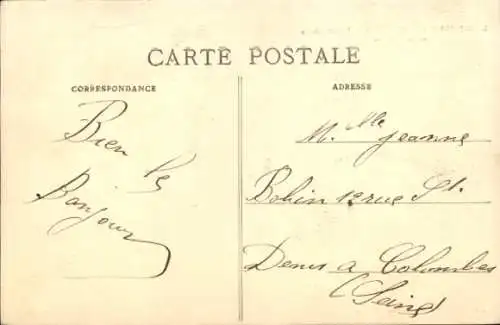 CARTE POSTALE
CORRESPONDANCE
ADRESSE
Bien le
Bonjour
M.elle Jeanne
Bobin 12 rue St.
Denis a Colombes
(Seine)